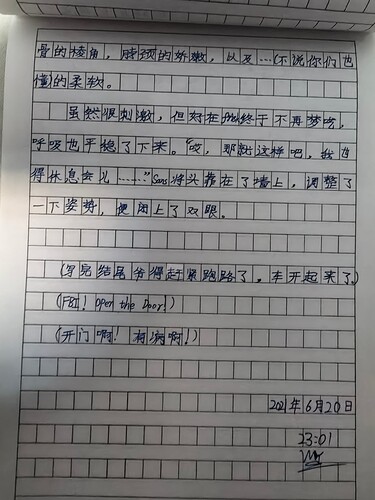 骨的棱角，脖颈的娇嫩，以及……(不说你们也
懂的柔软。
虽然很刺激，但好在frisk终于不再梦呓，
呼吸也平稳了下来。“哎，那就这样吧，我也
得休息会儿……”Sans将头靠在了墙上，调整了
一下姿势，便闭上了双眼。
(写完结尾爷得赶紧跑路了，车开起来了)
(FBI！Open the Door！)
(开门啊！有病啊！)
2021年6月20日
23:01